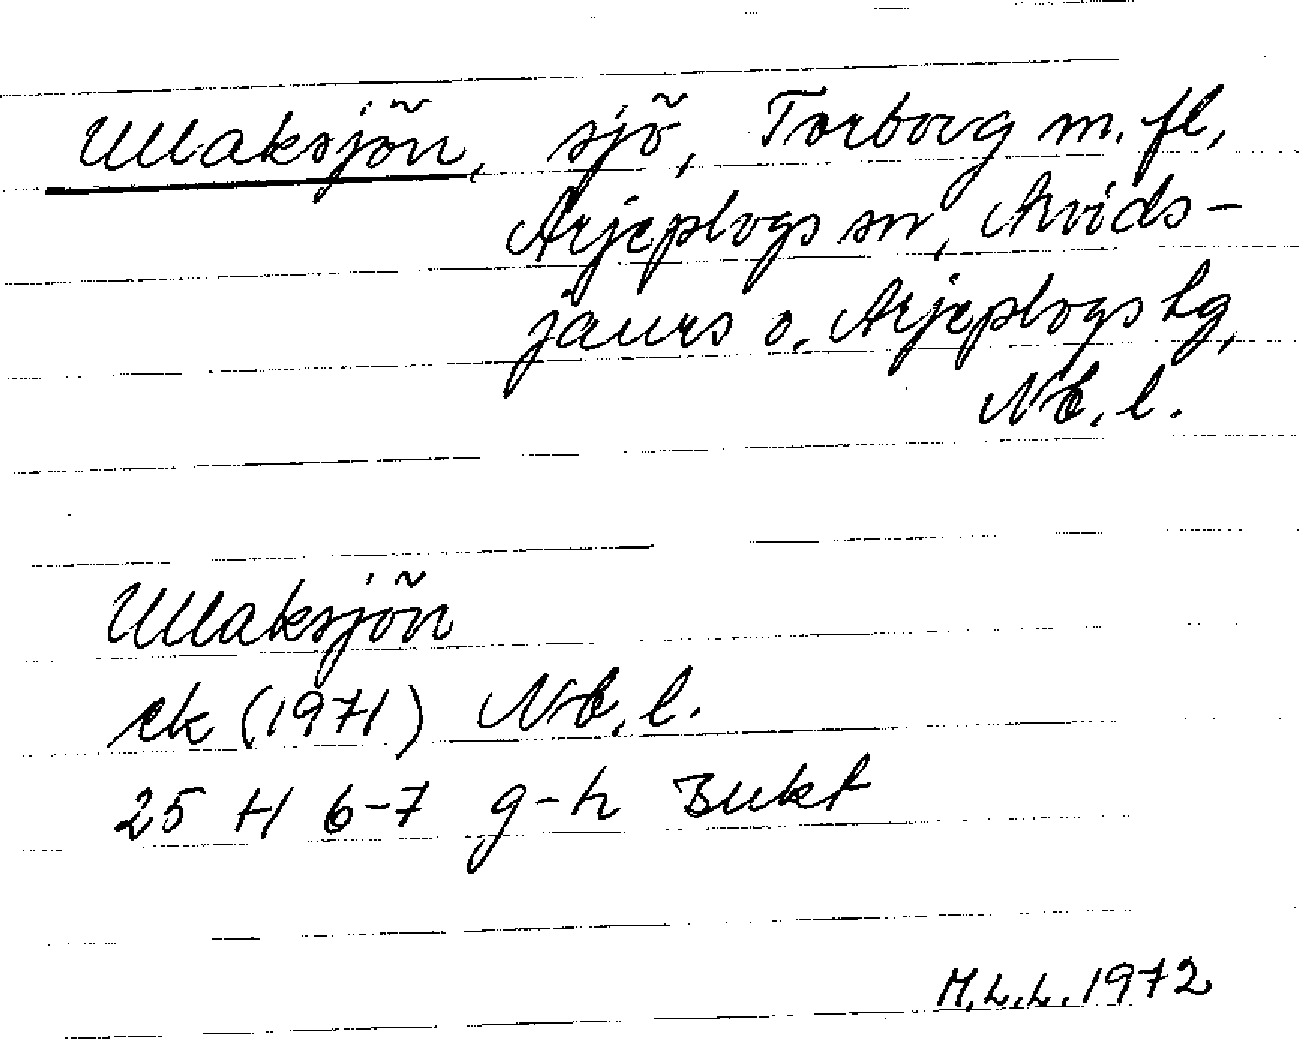 Ullaksjön, sjö, Torborg m. fl,
Arjeplogs sn, Arvids-
jaurs o. Arjeplogs lg,
Nb. l.
Ullaksjön
ek (1971) Nb. l.
25 H 6-7 g-h Bukt
M.L.L. 1972